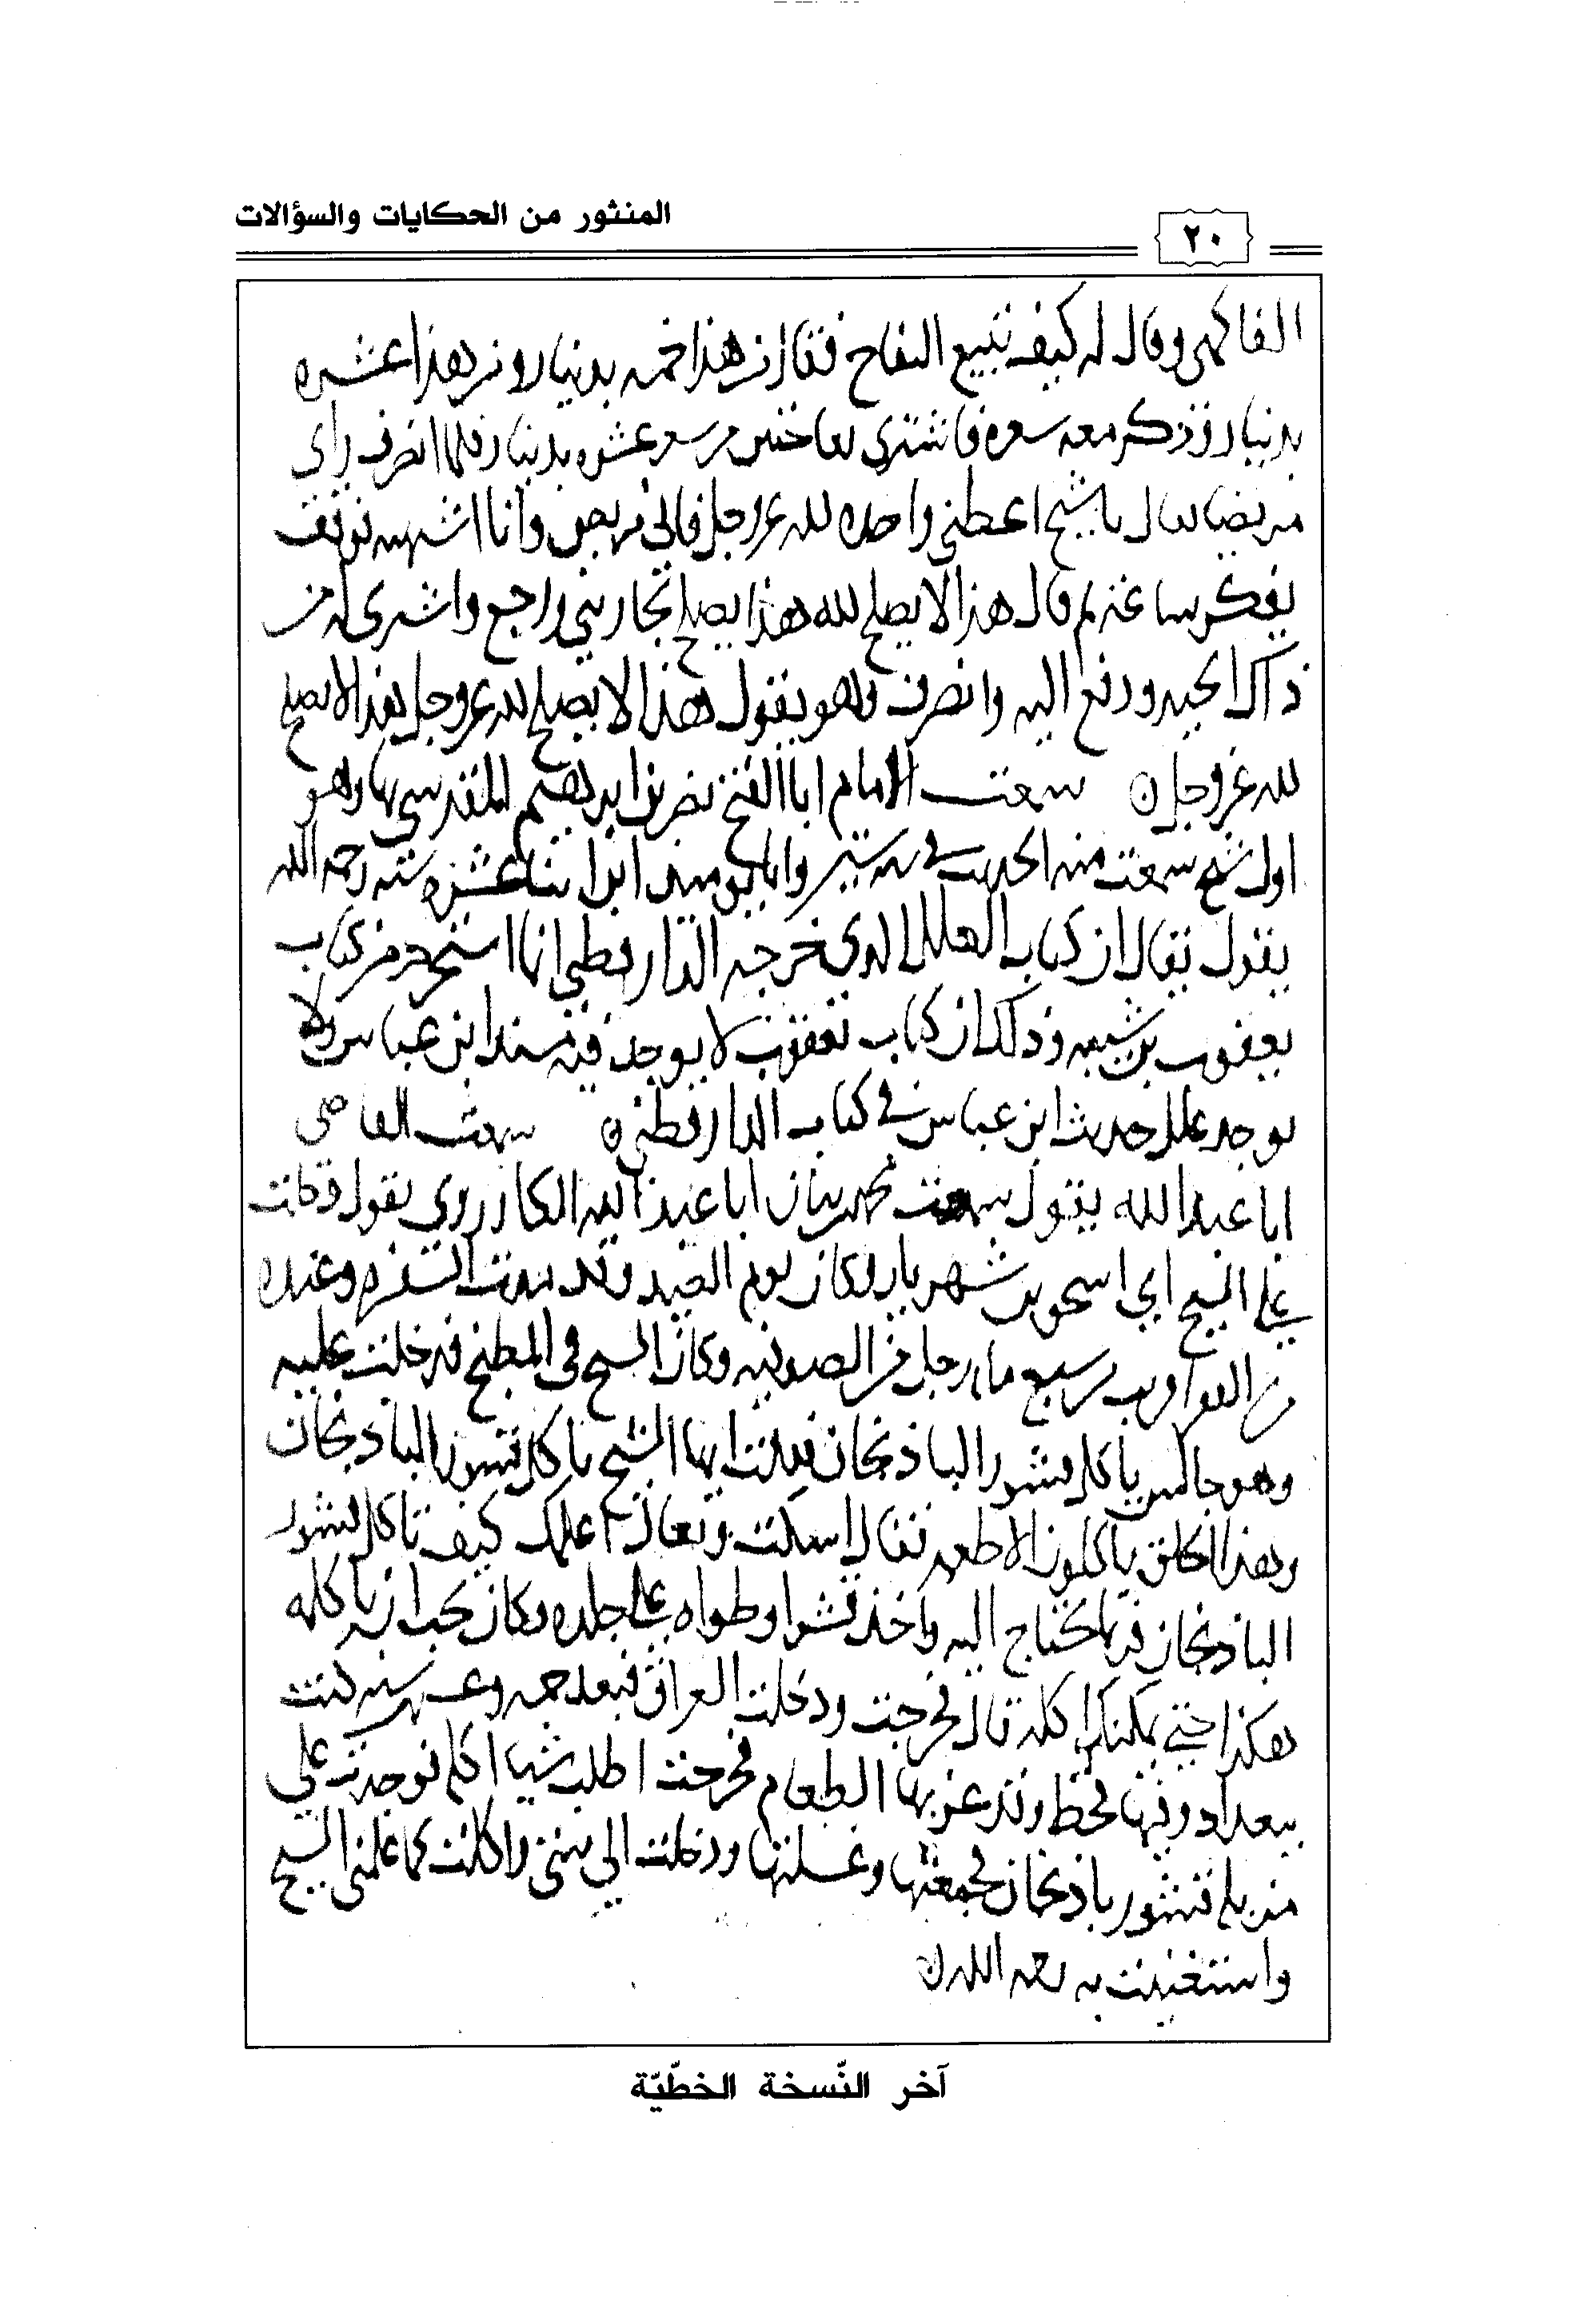 المنثور من الحكايات والسؤالات
٢٠
الفاكهي وقال له كيف تبيع التفاح فقال من هذا خمسه بدينار ومن هذا عشره
بدينار وذكر معه سعره فاشترى تفاحتين من سعر عشره بدينار فلما انصرف راى
مريضا فقال يا شيخ اعطني واحده لله عز وجل فاني مريض وانا اشتهيه فوقف
يفكر ساعة ثم قال هذا لا يصلح لله هذا يصلح وراجع واشترى له من
ذاك الجيد ودفع اليه وانصرف وهو يقول هذا لا يصلح لله عز وجل هذا لا يصلح
لله عز وجل ٥ سمعت الامام ابا الفتح نصر بن ابراهيم المقدسي بها وهو
اول شيخ سمعت منه الحديث في سنة وانا يوميذ ابن اثنتا عشره سنه رحمه الله
يقول يقال ان كتاب العلل الذي خرجه الدارقطني انما استخرجه من كتاب
يعقوب بن شيبه وذلك ان كتاب يعقوب لا يوجد فيه مسند ابن عباس ولا
يوجد علل حديث ابن عباس في كتاب الدارقطني ٥ سمعت القاضي
ابا عبد الله يقول سمعت ابا عبد الله الكازروني يقول دخلت
على الشيخ ابي اسحق بن شهريار وكان يوم العيد وقد مدت السفره وعنده
من الغرباء قريب من سبع مايه رجل من الصوفيه وكان الشيخ في المطبخ فدخلت عليه
وهو جالس ياكل قشور الباذنجان فقلت ايها الشيخ تاكل قشور الباذنجان
وهذا الخلق ياكلون الاطعمه فقال اسكت وتعال اعلمك كيف تاكل قشور
الباذنجان فربما تحتاج اليه واخذ قشرا وطواه على جلده وكان يجب ان ياكله
هكذا حتى يمكنك اكله قال فخرجت ودخلت العراق فبعد خمسه وعشرين سنه كنت
ببغداد وفيها قحط وقد عز بها الطعام فخرجت اطلب شيا اكله فوجدت على
مزبله قشور باذنجان فجمعتها وغسلتها ودخلت الى بيتي واكلت كما علمني الشيخ
واستغنيت به رحمه الله ٥
آخر النّسخة الخطّيّة